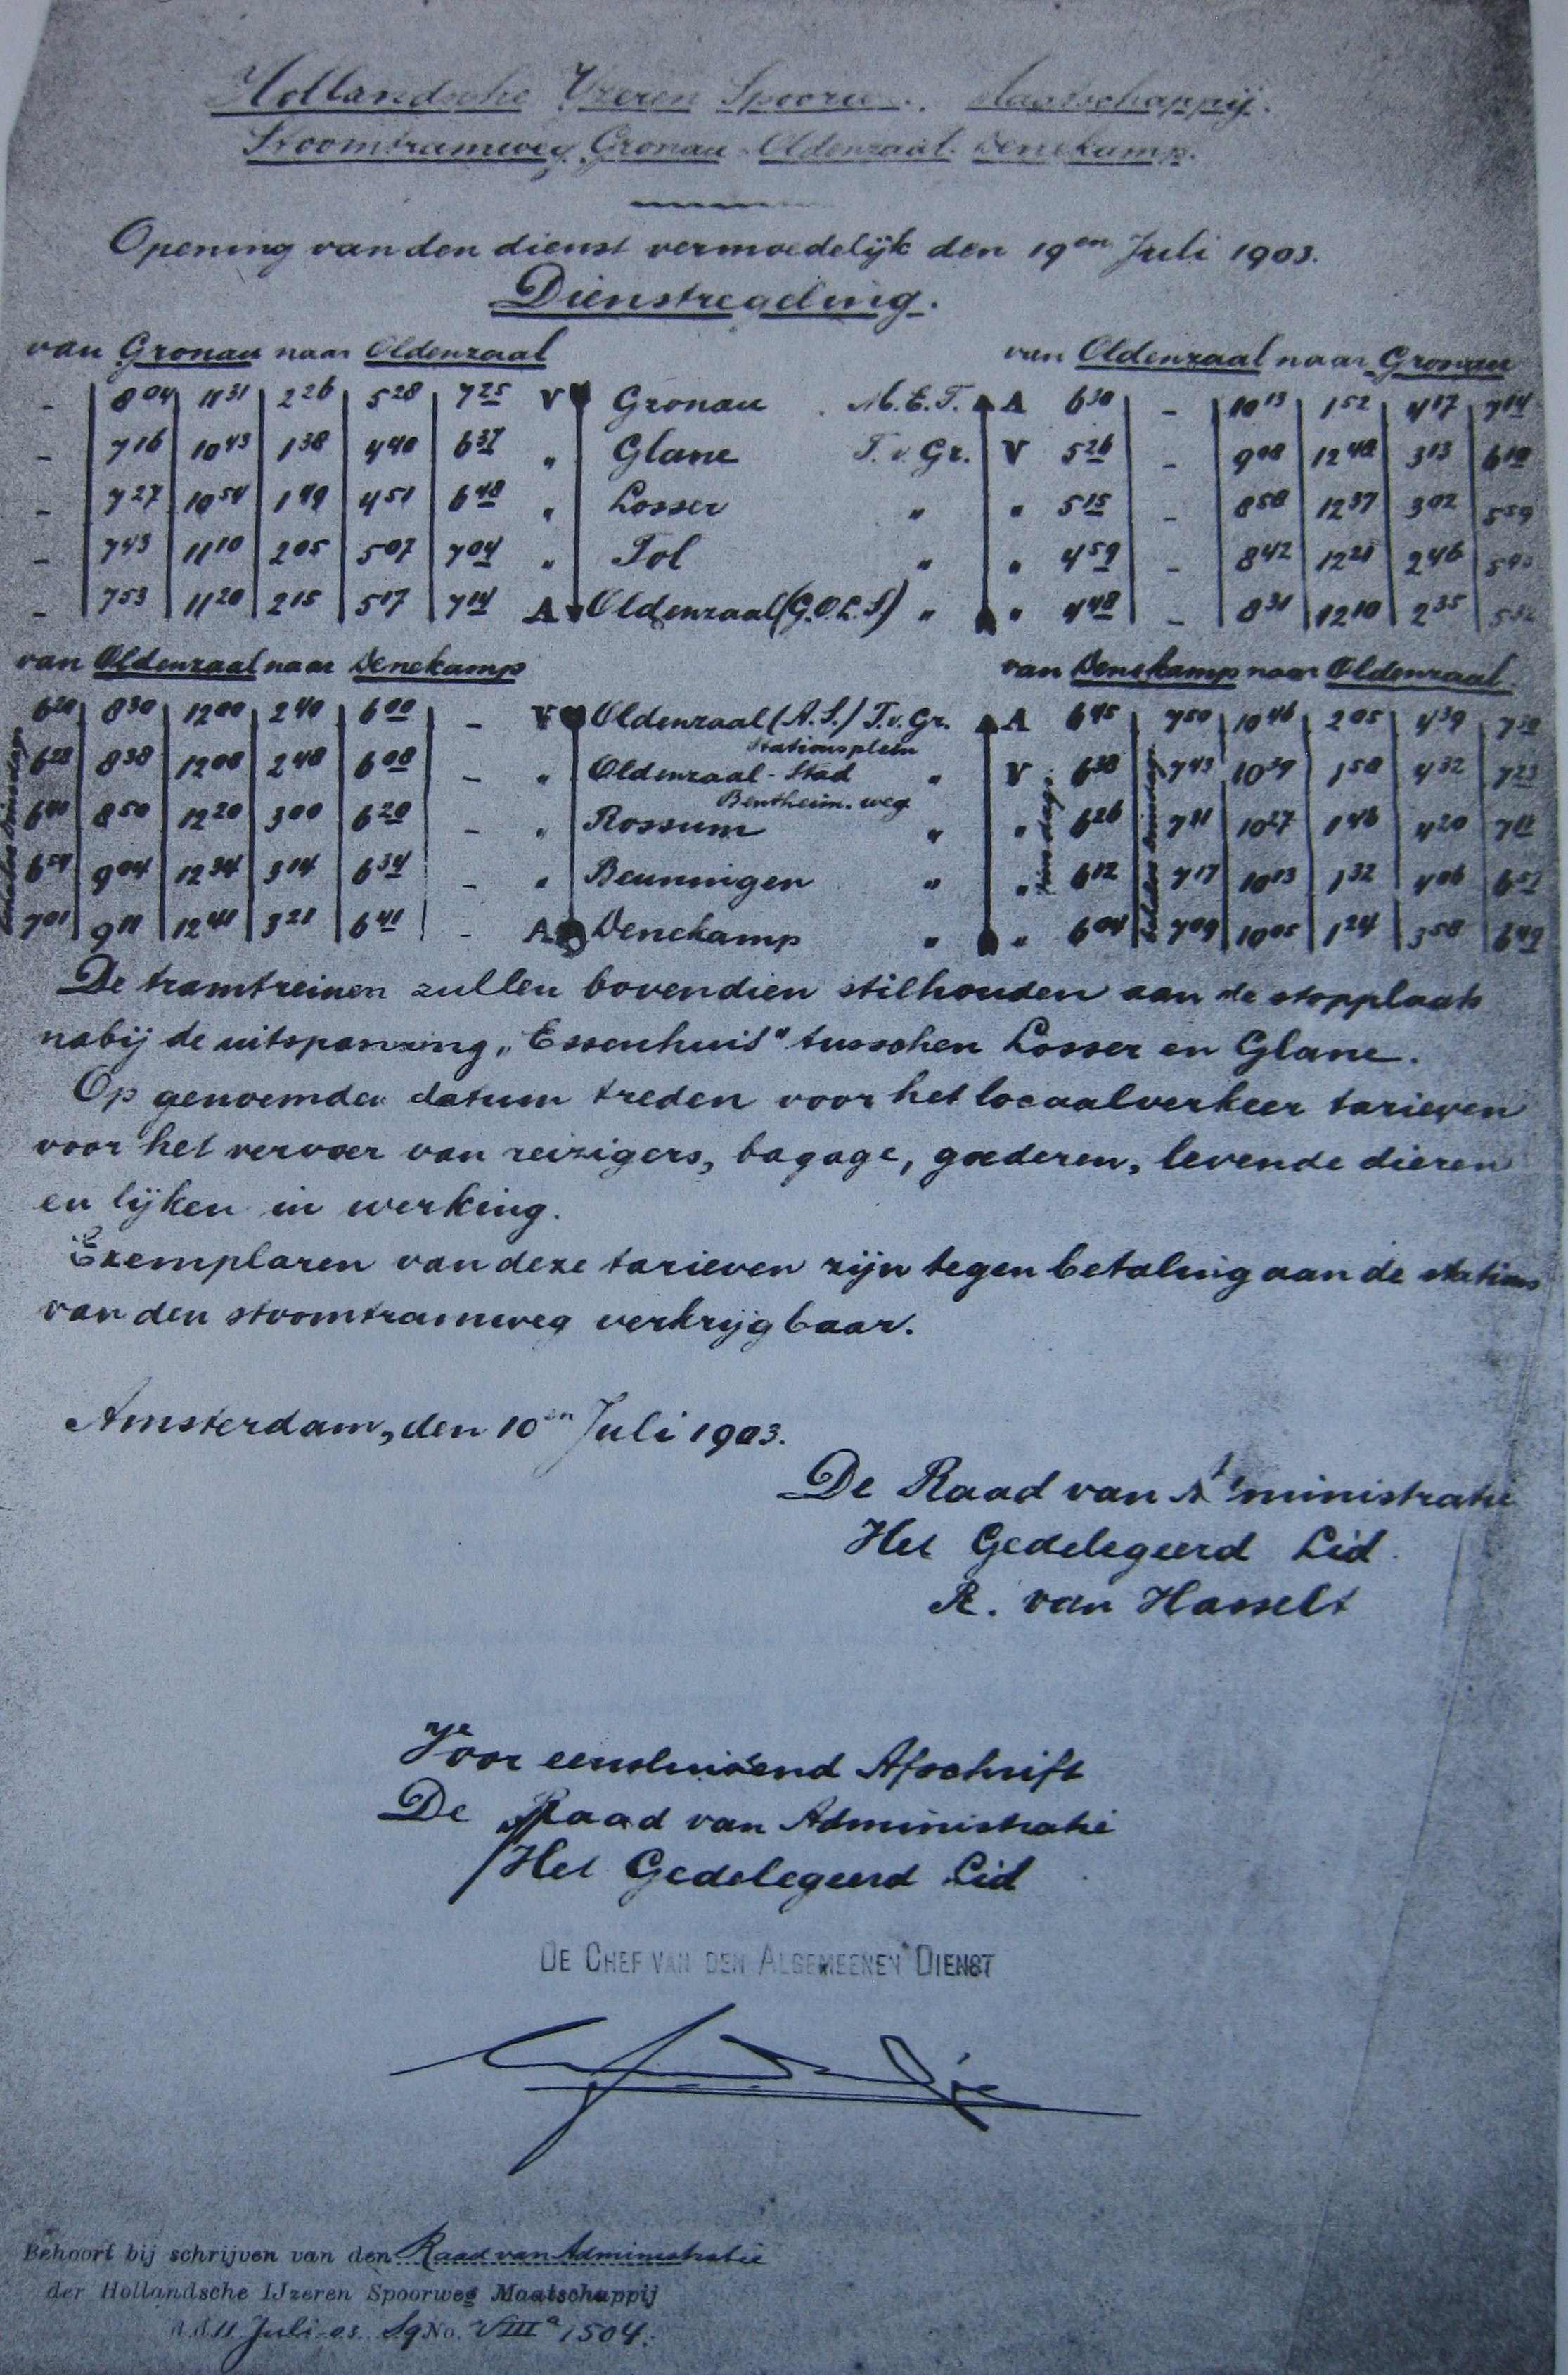 Hollandsche IJzeren Spoorweg Maatschappij.
Stoomtramweg Gronau - Oldenzaal - Denekamp.
Opening van den dienst vermoedelijk den 19en Juli 1903.
Dienstregeling.
van Gronau naar Oldenzaal van Oldenzaal naar Gronau
- 804 1131 226 528 725 V Gronau M.E.T. A 630 - 1013 152 417 714
- 716 1043 138 440 637 " Glane T.v.Gr. V 526 - 908 1248 313 610
- 727 1054 149 451 648 " Losser " " 515 - 858 1237 302 559
- 743 1110 205 507 704 " Tol " " 459 - 842 1221 246 543
- 753 1120 215 517 714 A Oldenzaal (G.O.L.S) " " 448 - 831 1210 235 532
van Oldenzaal naar Denekamp van Denekamp naar Oldenzaal.
620 830 1200 240 600 - V Oldenzaal (A.S.) T.v.Gr. A 645 750 1046 205 439 730
Stationsplein
628 838 1208 248 608 - " Oldenzaal-Stad " V 638 743 1039 158 432 723
Bentheim. weg
640 850 1220 300 620 - " Rossum " " 626 731 1027 146 420 711
654 904 1234 314 634 - " Beuningen " " 612 717 1013 132 406 657
701 911 1241 321 641 - A Denekamp " " 604 709 1005 124 358 649
De tramtreinen zullen bovendien stilhouden aan de stopplaats
nabij de uitspanning "Essenhuis" tusschen Losser en Glane.
Op genoemden datum treden voor het locaalverkeer tarieven
voor het vervoer van reizigers, bagage, goederen, levende dieren
en lijken in werking.
Exemplaren van deze tarieven zijn tegen betaling aan de stations
van den stoomtramweg verkrijgbaar.
Amsterdam, den 10en Juli 1903.
De Raad van Administratie
Het Gedelegeerd Lid.
R. van Hasselt
Voor eensluidend Afschrift
De Raad van Administratie
Het Gedelegeerd Lid
DE CHEF VAN DEN ALGEMEENEN DIENST
Behoort bij schrijven van den Raad van Administratie
der Hollandsche IJzeren Spoorweg Maatschappij
d.d. 11 Juli 03 Sg No. VIIIa 1504.